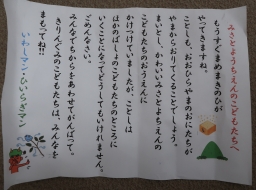 みさとようちえんのこどもたちへ
もうすぐまめまきのひが
やってきますね。
ことしも、おおひらやまのおにが
やまからおりてくることでしょう。
まいとし、かわいいみさとようちえんの
こどもたちのおうえんに
かけつけていましたが、ことしは
ほかのばしょのこどもたちのところに
いくことになってどうしてもいけれません。
ごめんなさい。
みんなでちからをあわせてがんばって。
きりんぐみのこどもたちは、みんなを
まもってね!!
いわしマン・ひいらぎマン